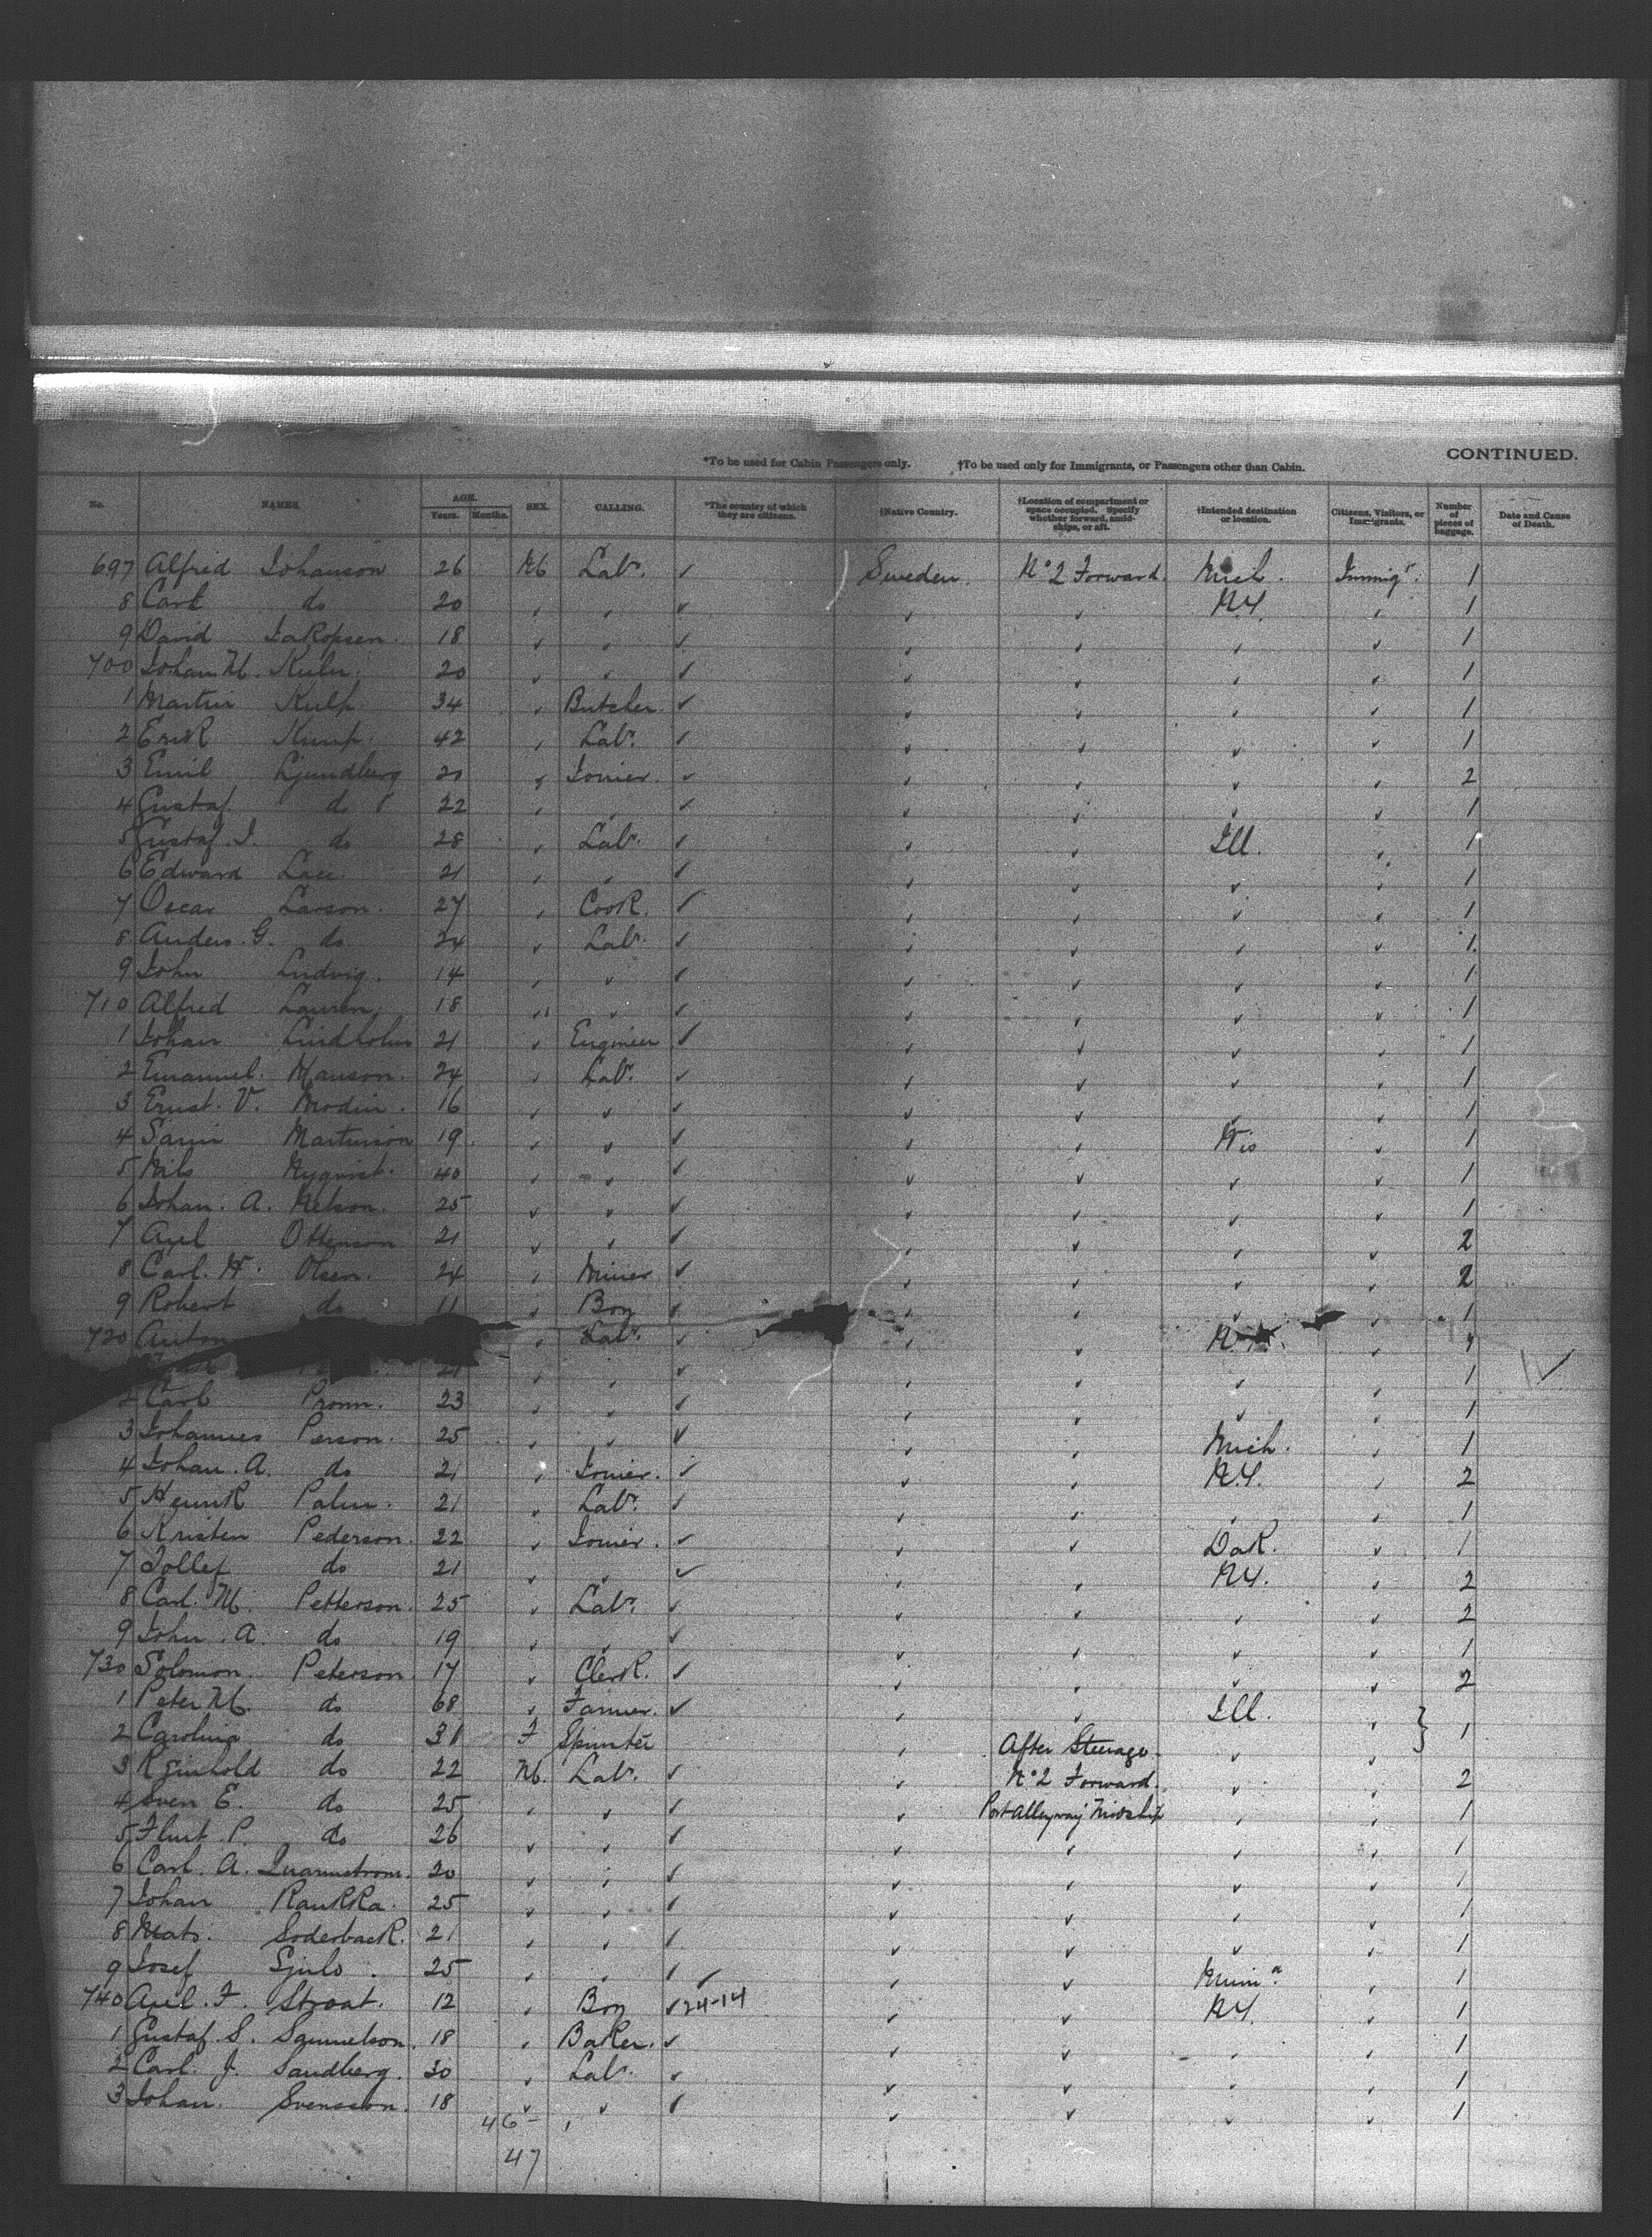 *To be used for Cabin Passengers only. †To be used only for Immigrants, or Passengers other than Cabin. CONTINUED.
No. NAMES. AGE. Years. Months. SEX. CALLING. *The country of which they are citizens. †Native Country. †Location of compartment or space occupied. Specify whether forward, amidships, or aft. †Intended destination or location. Citizens, Visitors, or Immigrants. Number of pieces of baggage. Date and Cause of Death.
697 Alfred Johanson 26 M Labr. ✓ Sweden. No 2 Forward. Mich. Immigt. 1
8 Carl do 20 " " ✓ " " N.Y. " 1
9 David Jakopsen. 18 " " ✓ " " " " 1
700 Johan M. 20 " " ✓ " " " " 1
1 Martin Kulp 34 " Butcher. ✓ " " " " 1
2 Erik 42 " Labr. ✓ " " " " 1
3 Emil Ljundberg 20 " Joiner. ✓ " " " " 2
4 Gustaf do 22 " " ✓ " " " " 1
5 Gustaf. J. do 28 " Labr. ✓ " " Ill. " 1
6 Edward 21 " " ✓ " " " " 1
7 Oscar Larson. 27 " Cook. ✓ " " " " 1
8 Anders. G. do. 24 " Labr. ✓ " " " " 1
9 John Ludvig. 14 " " ✓ " " " " 1
710 Alfred Lauren 18 " " ✓ " " " " 1
1 Johan Lindholm 21 " Engineer ✓ " " " " 1
2 Emanuel. Manson. 24 " Labr. ✓ " " " " 1
3 Ernst. V. Modin. 16 " " ✓ " " " " 1
4 Martinson 19. " " ✓ " " Wis " 1
5 Nils Nyqvist. 40 " " ✓ " " " " 1
6 Johan. A. Nelson. 25 " " ✓ " " " " 1
7 Axel Ottenson 21 " " ✓ " " " " 2
8 Carl. W. Olsen. 24 " Miner. ✓ " " " " 2
9 Robert do 11 " Boy ✓ " " " " 1
720 Anton " Labr. ✓ " " "
21 " " ✓ " " " " 1
2 Carl Pronn. 23 " " ✓ " " " " 1
3 Johannes Person. 25 " " ✓ " " Mich. " 1
4 Johan. A. do 21 " Joiner. ✓ " " N.Y. " 2
5 Henrik Palm. 21 " Labr. ✓ " " " " 1
6 Kristen Pederson. 22 " Joiner. ✓ " " Dak. " 1
7 Tollef do 21 " " ✓ " " N.Y. " 2
8 Carl. M. Petterson. 25 " Labr. ✓ " " " " 2
9 John. A. do 19 " " ✓ " " " " 1
730 Solomon. Peterson. 17 " Clerk. ✓ " " " " 2
1 Peter M. do 68 " Farmer. ✓ " " Ill. " } 1
2 Carolina do 31 F Spinster " After Steerage. " "
3 Rginhold do 22 M. Labr. ✓ " No 2 Forward. " " 2
4 Sven E. do 25 " " ✓ " Port Alleyway Midship " " 1
5 P. do 26 " " ✓ " " " " 1
6 Carl. A. Quarnstrom. 20 " " ✓ " " " " 1
7 Johan Raukka. 25 " " ✓ " " " " 1
8 Mats. Soderback. 21 " " ✓ " " " " 1
9 Josef 25 " " ✓ ✓ " " Minna. " 1
740 Axel. F. Stroat. 12 " Boy ✓ 24-14 " " N.Y. " 1
1 Gustaf. S. Samuelson. 18 " Baker. ✓ " " " " 1
2 Carl. J. Sandberg. 30 " Labr. ✓ " " " " 1
3 Johan. Svensson. 18 " " ✓ " " " " 1
46-
47